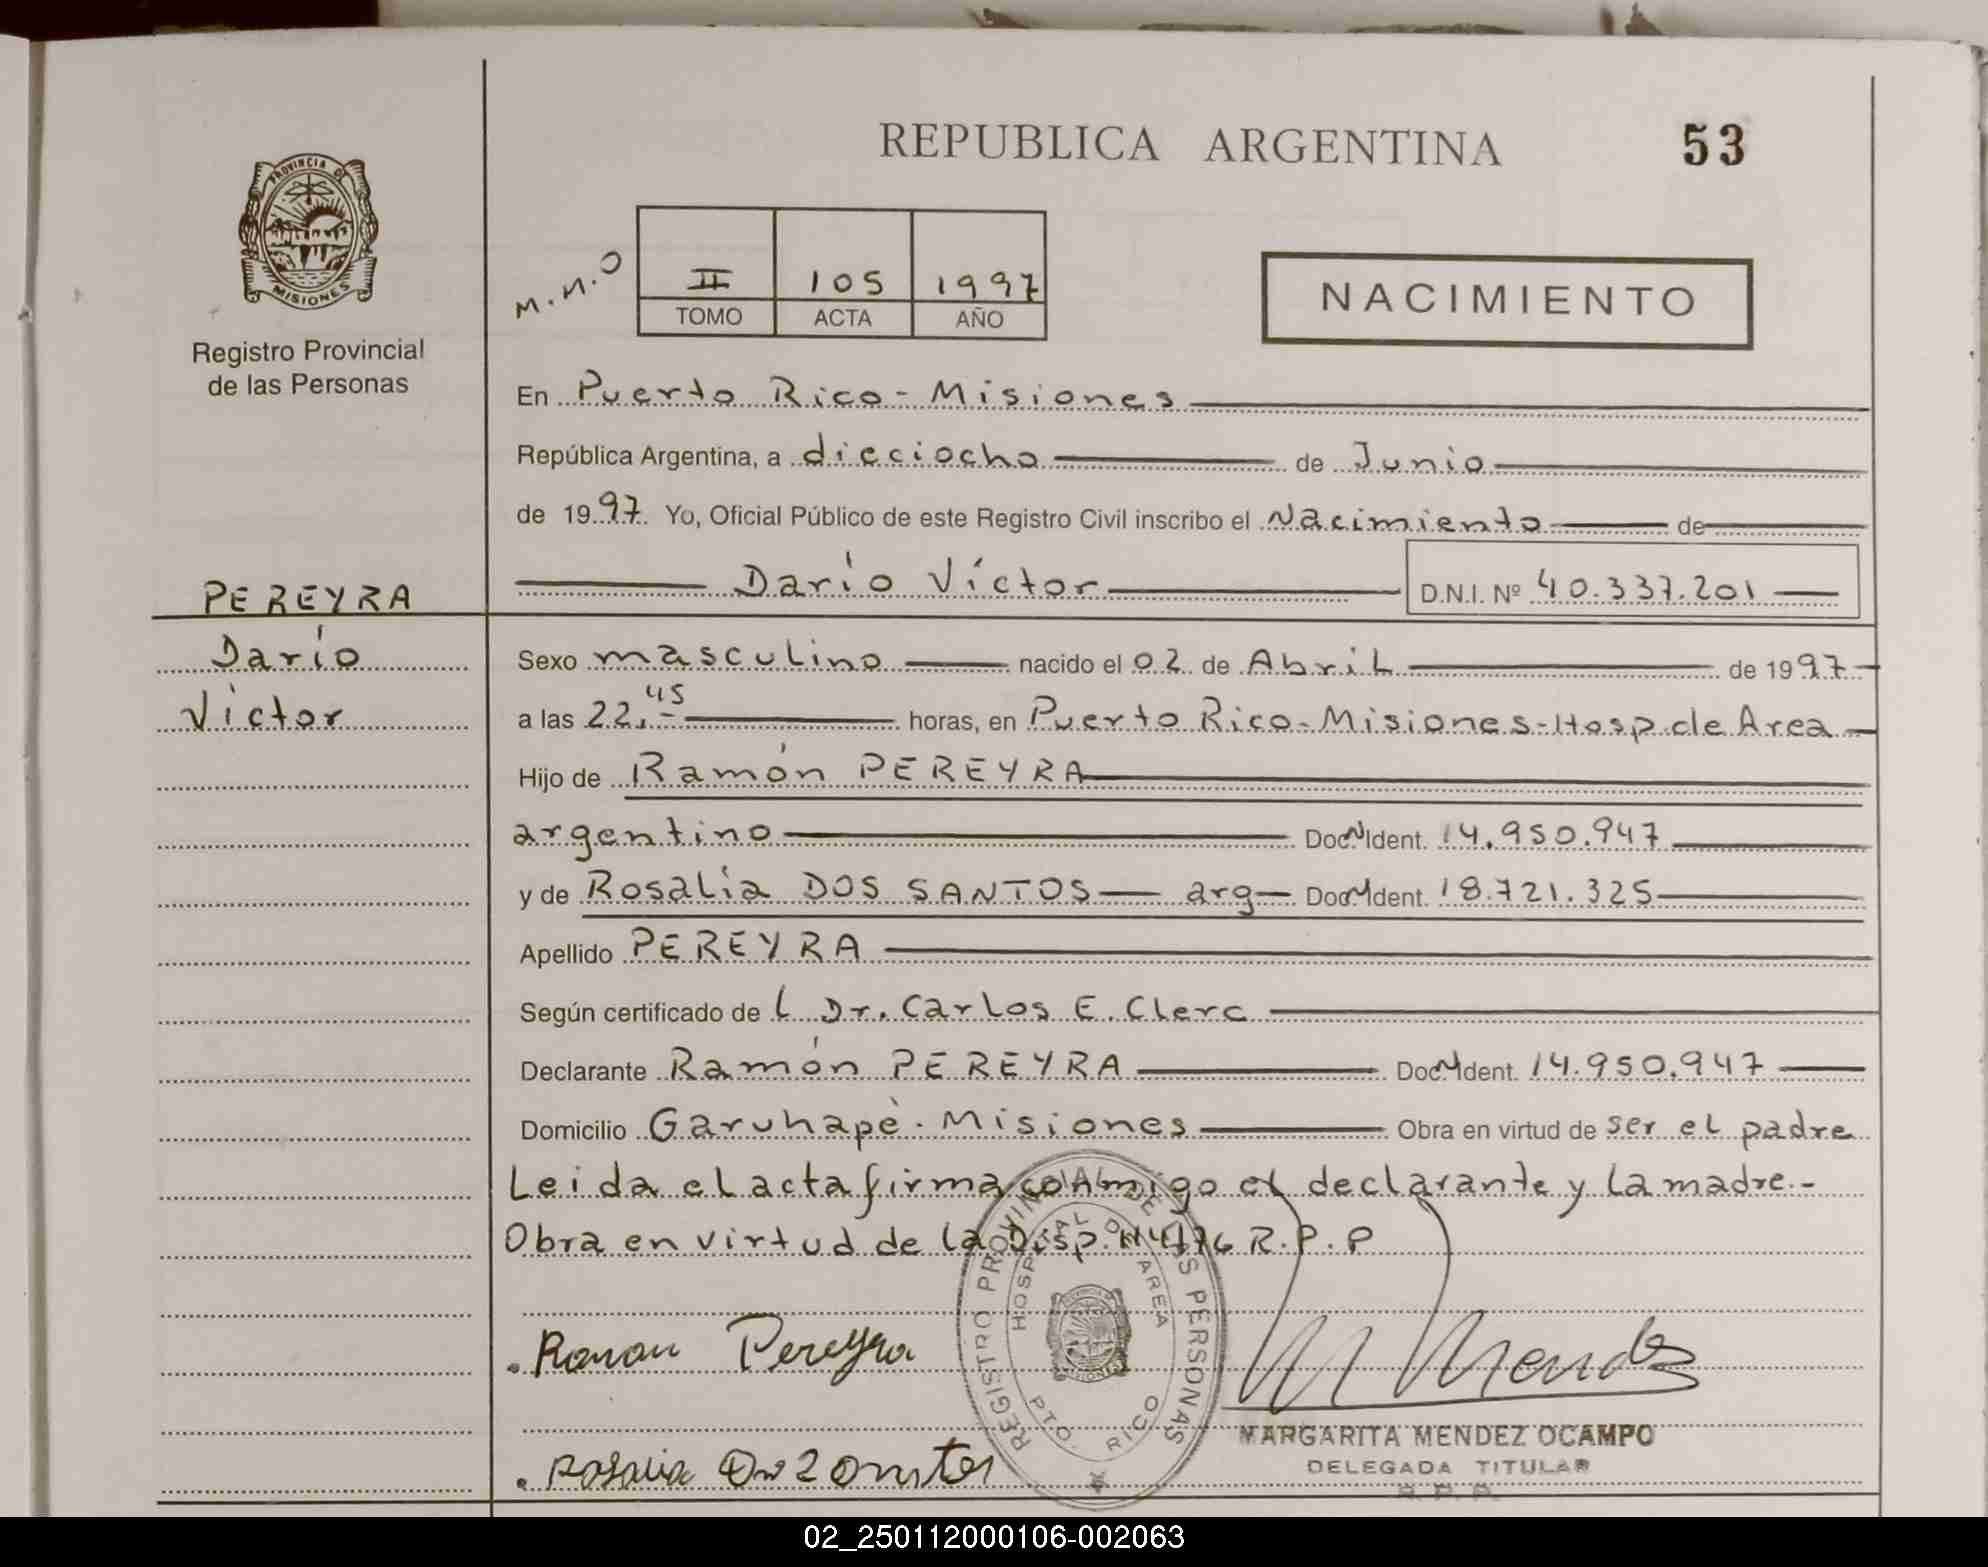 REPUBLICA ARGENTINA
53
PROVINCIA DE
MISIONES
Registro Provincial
de las Personas
M.M.O
II 105 1997
TOMO ACTA AÑO
NACIMIENTO
En Puerto Rico - Misiones
República Argentina, a dieciocho de Junio
de 1997. Yo, Oficial Público de este Registro Civil inscribo el Nacimiento de
Darío Víctor D.N.I. Nº 40.337.201
PEREYRA
Darío
Víctor
Sexo masculino nacido el 02 de Abril de 1997
a las 22.45 horas, en Puerto Rico - Misiones - Hosp. de Area
Hijo de Ramón PEREYRA
argentino Doc. N Ident. 14.950.947
y de Rosalia DOS SANTOS arg Doc. N Ident. 18.721.325
Apellido PEREYRA
Según certificado de l Dr. Carlos E. Clerc
Declarante Ramón PEREYRA Doc. N Ident. 14.950.947
Domicilio Garuhapè. Misiones Obra en virtud de ser el padre
Leida el acta firma conmigo el declarante y la madre.-
Obra en virtud de la Disp. R.P.P
Ramon Pereyra
M Mendez
REGISTRO PROVINCIAL DE LAS PERSONAS
HOSPITAL DE AREA
PTO. RICO
MARGARITA MENDEZ OCAMPO
DELEGADA TITULAR
R. P. P.
Rosalia
02_250112000106-002063